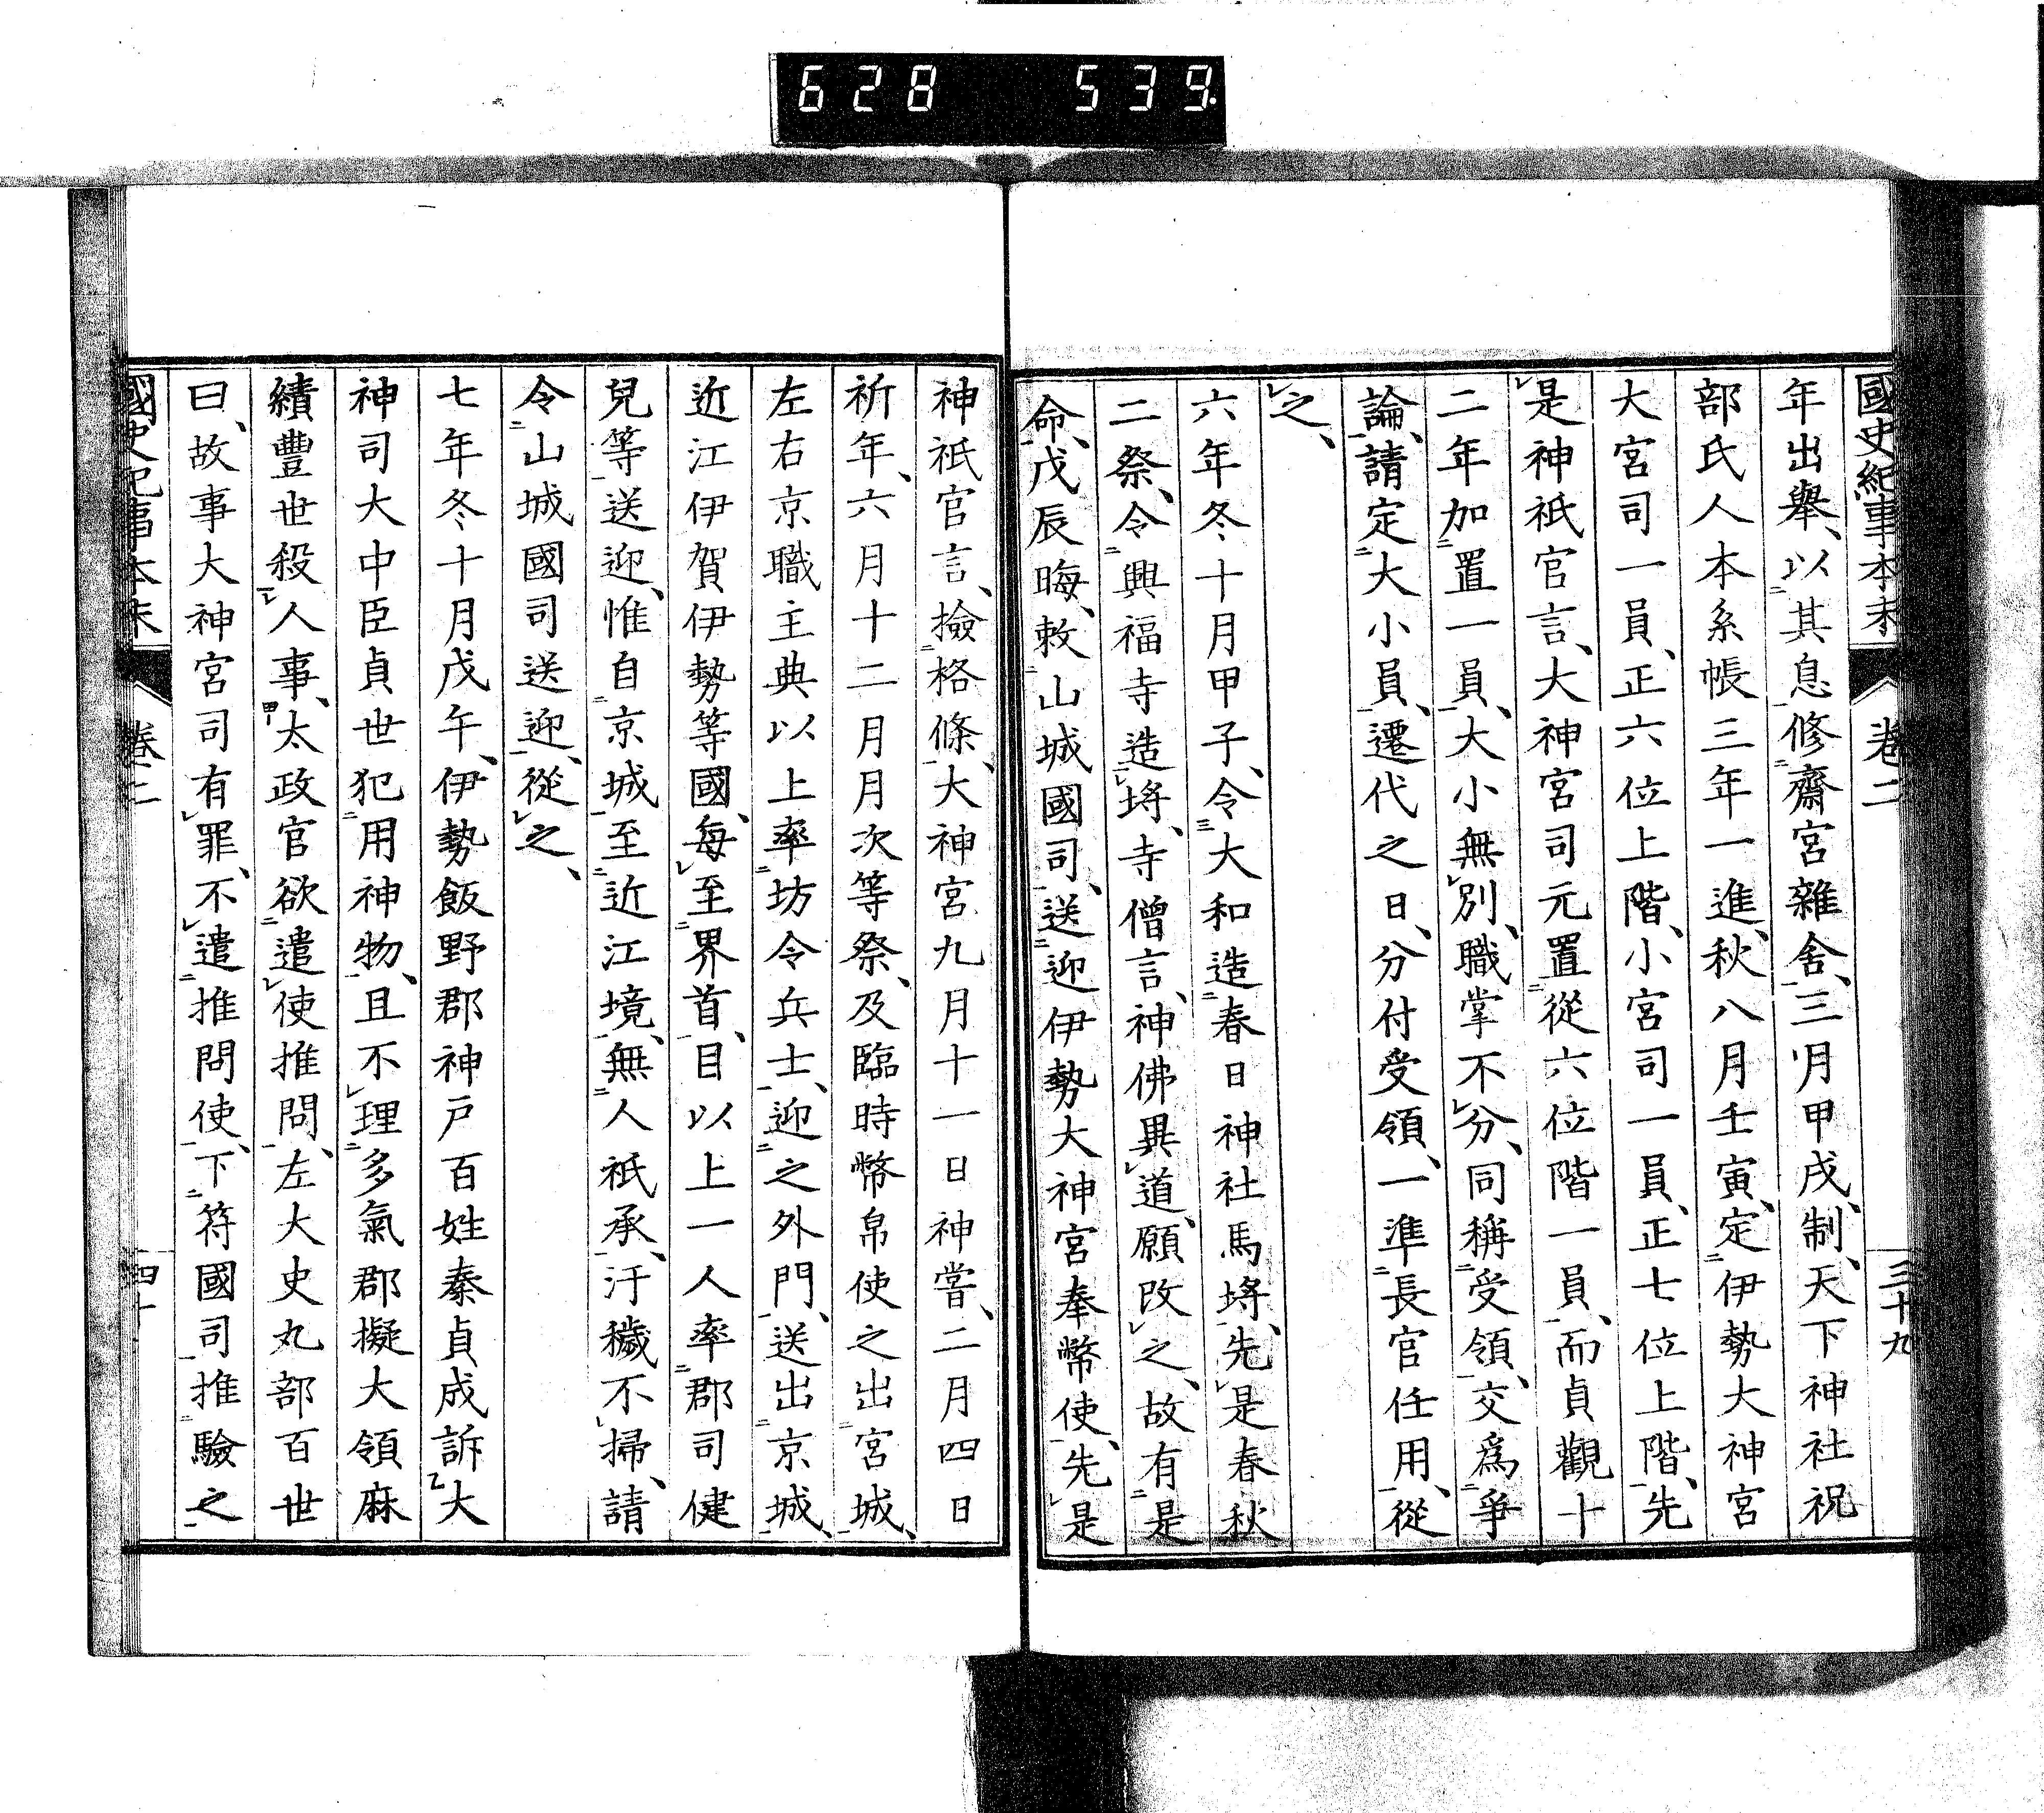 628 539.
國史紀事本末 卷二 三十九
年出舉、以其息修齋宮雜舍、三月甲戌、制、天下神社祝
部氏人本系帳三年一進、秋八月壬寅、定伊勢大神宮
大宮司一員、正六位上階、小宮司一員、正七位上階、先
是神祇官言、大神宮司元置從六位階一員、而貞觀十
二年加置一員、大小無別、職掌不分、同稱受領、交爲爭
論、請定大小員、遷代之日、分付受領、一準長官任用、從
之、
六年冬十月甲子、令大和造春日神社馬埒、先是春秋
二祭、令興福寺造埒、寺僧言、神佛異道、願改之、故有是
命、戊辰晦、敕山城國司、送迎伊勢大神宮奉幣使、先是
神祇官言、撿格條、大神宮九月十一日神嘗、二月四日
祈年、六月十二月月次等祭、及臨時幣帛使之出宮城、
左右京職主典以上率坊令兵士、迎之外門、送出京城、
近江伊賀伊勢等國、每至界首、目以上一人率郡司健
兒等送迎、惟自京城至近江境、無人祇承、汙穢不掃、請
令山城國司送迎、從之、
七年冬十月戊午、伊勢飯野郡神戸百姓秦貞成訴大
神司大中臣貞世犯用神物、且不理多氣郡擬大領麻
續豐世殺人事、太政官欲遣使推問、左大史丸部百世
曰、故事大神宮司有罪、不遣推問使、下符國司推驗之
國史紀事本末 卷二 四十